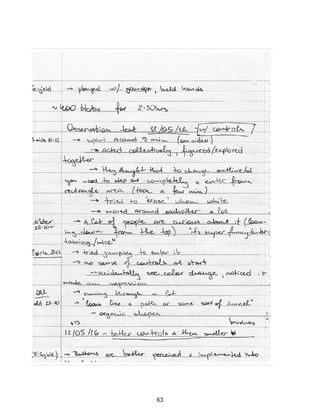 → played w/ grandpa, held hands
~ 400 blobs for 2.30hrs
Observation test 11/05/16 (w/ controls)
→ spent around 9 min (on video)
→ acted collectively, figured/explored
together
→ they thought that to change outline/col
you need to step out completely & enter from
rectangle area (took a few min)
→ tried to erase when white
→ moved around eachother a lot
older → A lot of people are curious about it (loo-
ing down from the top) "it's super funny/enter-
taining/nice"
→ tried jumping to enter it
→ no sense of controls at start
→ accidentally see color change, noticed it
made an impression
→ running through a lot
→ "looks like a path or some sort of tunnel"
→ organic shapes
brushes
12/05/16 - better controls & then smaller
→ Buttons are better perceived & implemented into
63